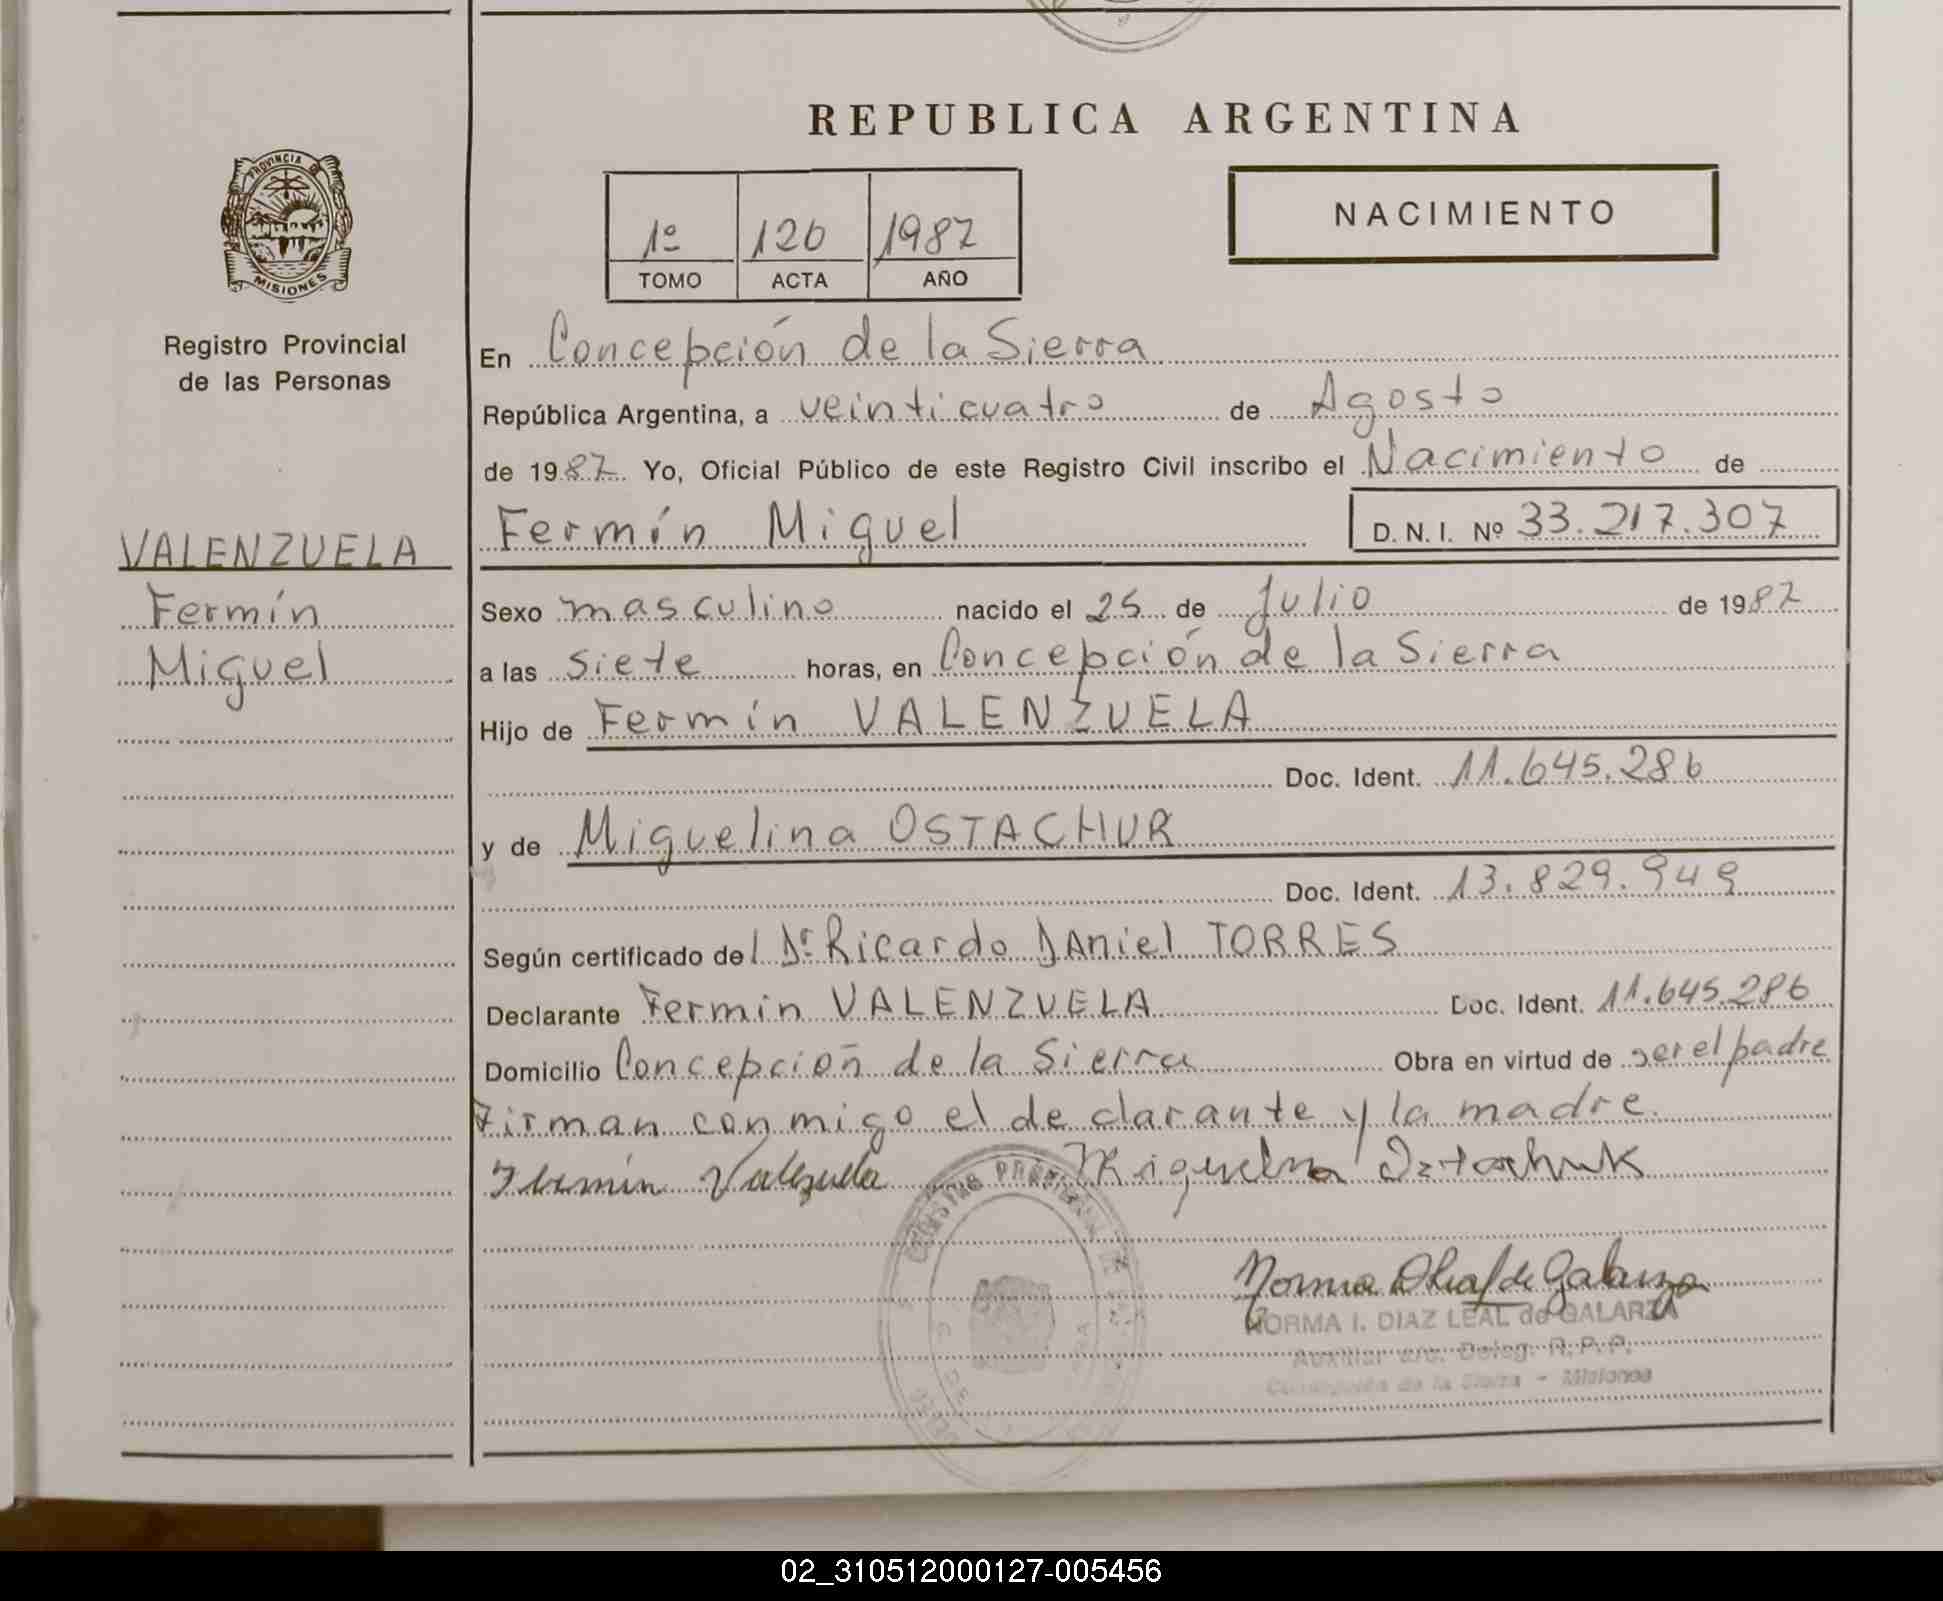 REPUBLICA ARGENTINA
PROVINCIA DE
MISIONES
Registro Provincial
de las Personas
1º 126 1987
TOMO ACTA AÑO
NACIMIENTO
En Concepción de la Sierra
República Argentina, a veinticuatro de Agosto
de 1987 Yo, Oficial Público de este Registro Civil inscribo el Nacimiento de
Fermín Miguel D. N. I. Nº 33.217.307
VALENZUELA
Fermín
Miguel
Sexo masculino nacido el 25 de Julio de 1987
a las siete horas, en Concepción de la Sierra
Hijo de Fermín VALENZUELA
Doc. Ident. 11.645.286
y de Miguelina OSTACHUR
Doc. Ident. 13.829.949
Según certificado del Dr Ricardo DAniel TORRES
Declarante Fermin VALENZUELA Doc. Ident. 11.645.286
Domicilio Concepción de la Sierra Obra en virtud de ser el padre
Firman conmigo el declarante y la madre.
Fermín Valezuela Miguelina Ostachuk
Norma DLeal de Galarza
NORMA I. DIAZ LEAL de GALARZA
Auxiliar a/c. Deleg. R. P. P.
Concepción de la Sierra - Misiones
02_310512000127-005456